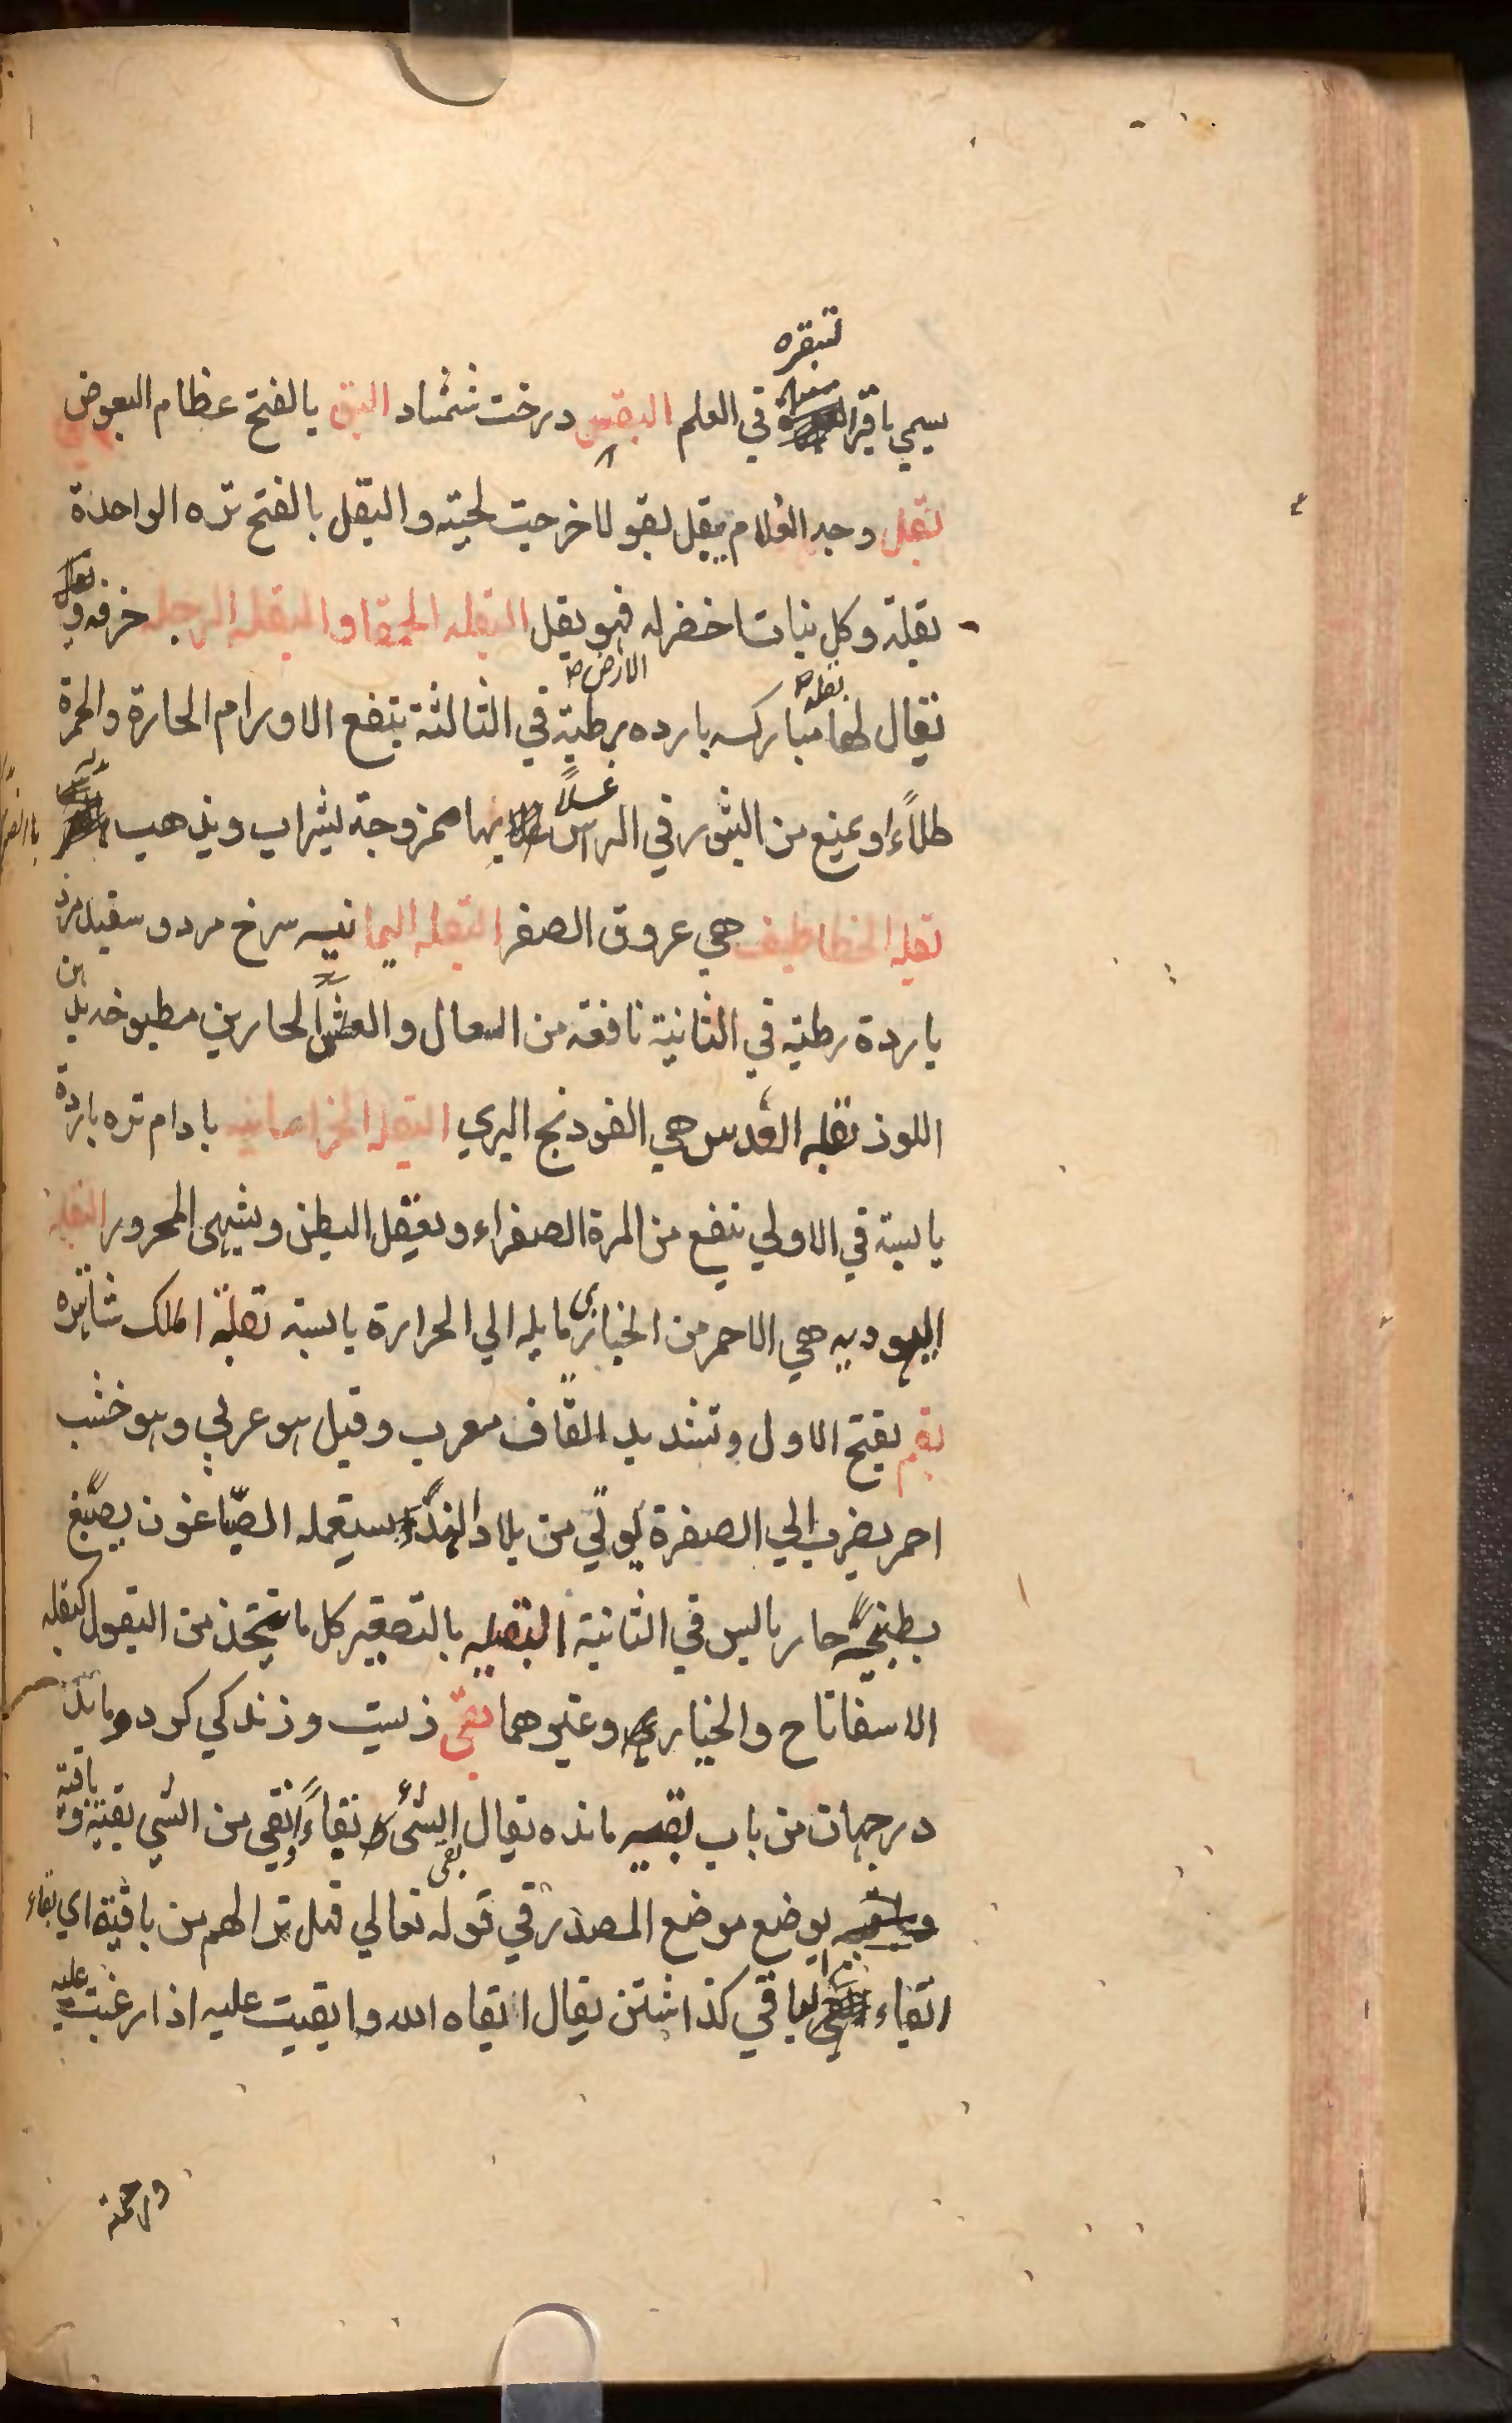 سمي باقرا لتبقره في العلم البقس درخت شمشاد البق بالفتح عظام البعوض
بقل وجه الغلام يبقل بقولا خرجت لحيته والبقل بالفتح تره الواحدة
بقلة وكل نبات اخضر له فهو بقل البقله الحمقا والبقله الرجله خرفه و
يقال لها بقله مباركه بارده رطبة في الثالثة ينفع الاورام الحارة والحمرة
طلاءً او يمنع من البثور في الراس غسلاً بها ممزوجة بشراب ويذهب
بقله الخطاطيف هي عروق الصفر البقله اليمانيه سرخ مرد و سفيد مرد
باردة رطبة في الثانية نافعه من السعال والعطش الحارين مطبوخه بدهن
اللوذ بقله القدس هي الفودنج البري البقله الخراسانيه بادام تره باردة
يابسة في الاولي ينفع من المرة الصفراء ويعقل البطن ويشهي المحرور البقله
اليهوديه هي الاحمر من الخبازي مايله الي الحرارة يابسة بقلة الملك شاتره
بقم بفتح الاول وتشديد القاف معرب وقيل هو عربي وهو خشب
احمر يضرب الي الصفرة يوتي من بلاد الهند يستعمله الصباغون يصبغ
بطبخه حار يابس في الثانية البقليه بالتصغير كل ما يتخذ من البقول كبقله
الاسفاناح والخبازي وغيرهما بقي زيست و زندكي كرد و ماند
در جهان من باب بقيه مانده يقال بقي الشئ بقاءً وبقي من الشي بقية و باقية
يوضع موضع المصدر في قوله تعالي فهل ترا لهم من باقية اي بقاء
ابقاء باقي كذاشتن يقال ابقاه الله وابقيت عليه اذا رغبت عليه
ورحمته